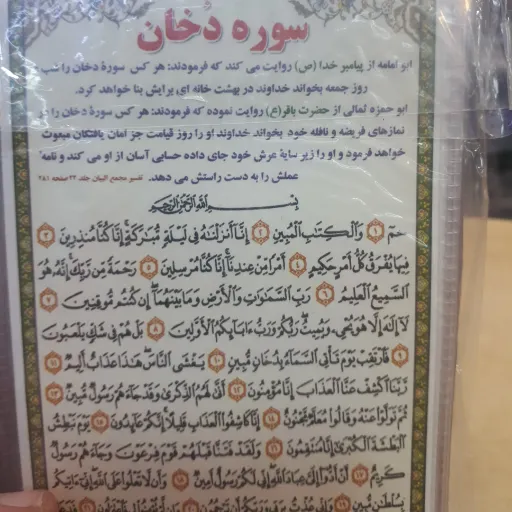 سوره دُخان
ابو امامه از پیامبر خدا (ص) روایت می کند که فرمودند: هر کس سورهٔ دخان را شب
روز جمعه بخواند خداوند در بهشت خانه ای برایش بنا خواهد کرد.
ابو حمزه ثمالی از حضرت باقر(ع) روایت نموده که فرمودند: هر کس سورهٔ دخان را در
نمازهای فریضه و نافله خود بخواند خداوند او را روز قیامت جز امان یافتگان مبعوث
خواهد فرمود و او را زیر سایهٔ عرش خود جای داده حسابی آسان از او می کند و نامهٔ
عملش را به دست راستش می دهد. تفسیر مجمع البیان جلد ۲۲ صفحه ۲۸۱
بِسْمِ اللَّهِ الرَّحْمَٰنِ الرَّحِيمِ
حم ۱ وَالْكِتَابِ الْمُبِينِ ۲ إِنَّا أَنْزَلْنَاهُ فِي لَيْلَةٍ مُبَارَكَةٍ إِنَّا كُنَّا مُنْذِرِينَ ۳
فِيهَا يُفْرَقُ كُلُّ أَمْرٍ حَكِيمٍ ۴ أَمْرًا مِنْ عِنْدِنَا إِنَّا كُنَّا مُرْسِلِينَ ۵ رَحْمَةً مِنْ رَبِّكَ إِنَّهُ هُوَ
السَّمِيعُ الْعَلِيمُ ۶ رَبِّ السَّمَاوَاتِ وَالْأَرْضِ وَمَا بَيْنَهُمَا إِنْ كُنْتُمْ مُوقِنِينَ ۷
لَا إِلَٰهَ إِلَّا هُوَ يُحْيِي وَيُمِيتُ رَبُّكُمْ وَرَبُّ آبَائِكُمُ الْأَوَّلِينَ ۸ بَلْ هُمْ فِي شَكٍّ يَلْعَبُونَ
۹ فَارْتَقِبْ يَوْمَ تَأْتِي السَّمَاءُ بِدُخَانٍ مُبِينٍ ۱۰ يَغْشَى النَّاسَ هَٰذَا عَذَابٌ أَلِيمٌ ۱۱
رَبَّنَا اكْشِفْ عَنَّا الْعَذَابَ إِنَّا مُؤْمِنُونَ ۱۲ أَنَّىٰ لَهُمُ الذِّكْرَىٰ وَقَدْ جَاءَهُمْ رَسُولٌ مُبِينٌ ۱۳
ثُمَّ تَوَلَّوْا عَنْهُ وَقَالُوا مُعَلَّمٌ مَجْنُونٌ ۱۴ إِنَّا كَاشِفُو الْعَذَابِ قَلِيلًا إِنَّكُمْ عَائِدُونَ ۱۵ يَوْمَ نَبْطِشُ
الْبَطْشَةَ الْكُبْرَىٰ إِنَّا مُنْتَقِمُونَ ۱۶ وَلَقَدْ فَتَنَّا قَبْلَهُمْ قَوْمَ فِرْعَوْنَ وَجَاءَهُمْ رَسُولٌ
كَرِيمٌ ۱۷ أَنْ أَدُّوا إِلَيَّ عِبَادَ اللَّهِ إِنِّي لَكُمْ رَسُولٌ أَمِينٌ ۱۸ وَأَنْ لَا تَعْلُوا عَلَى اللَّهِ إِنِّي آتِيكُمْ
بِسُلْطَانٍ مُبِينٍ ۱۹ وَإِنِّي عُذْتُ بِرَبِّي وَرَبِّكُمْ أَنْ تَرْجُمُونِ ۲۰